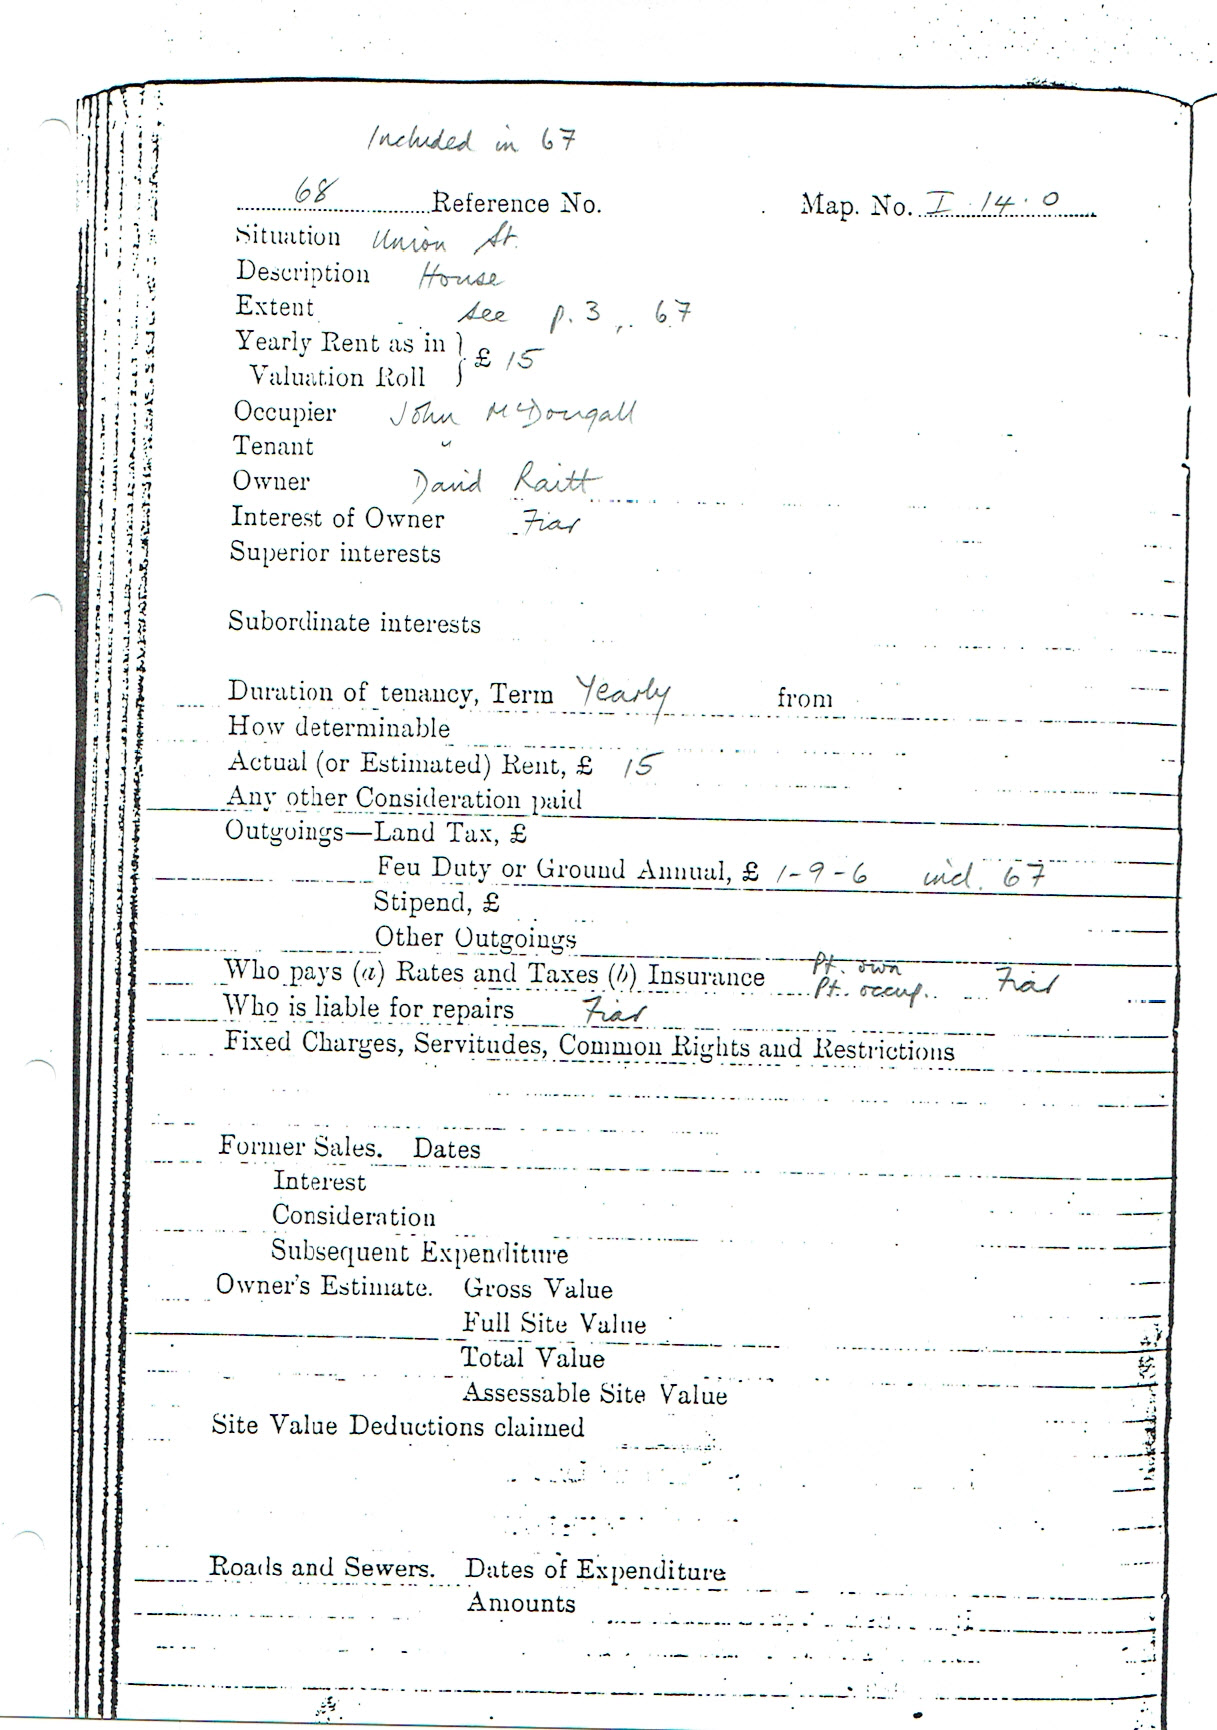 Included in 67
68 Reference No. Map. No. I.14.0
Situation Union St.
Description House
Extent see p.3, 67
Yearly Rent as in
Valuation Roll } £ 15
Occupier John McDougall
Tenant "
Owner David Raitt
Interest of Owner Fiar
Superior interests
Subordinate interests
Duration of tenancy, Term Yearly from
How determinable
Actual (or Estimated) Rent, £ 15
Any other Consideration paid
Outgoings—Land Tax, £
Feu Duty or Ground Annual, £ 1-9-6 incl. 67
Stipend, £
Other Outgoings
Who pays (a) Rates and Taxes (b) Insurance Pt. own Pt. occup. Fiar
Who is liable for repairs Fiar
Fixed Charges, Servitudes, Common Rights and Restrictions
Former Sales. Dates
Interest
Consideration
Subsequent Expenditure
Owner's Estimate. Gross Value
Full Site Value
Total Value
Assessable Site Value
Site Value Deductions claimed
Roads and Sewers. Dates of Expenditure
Amounts